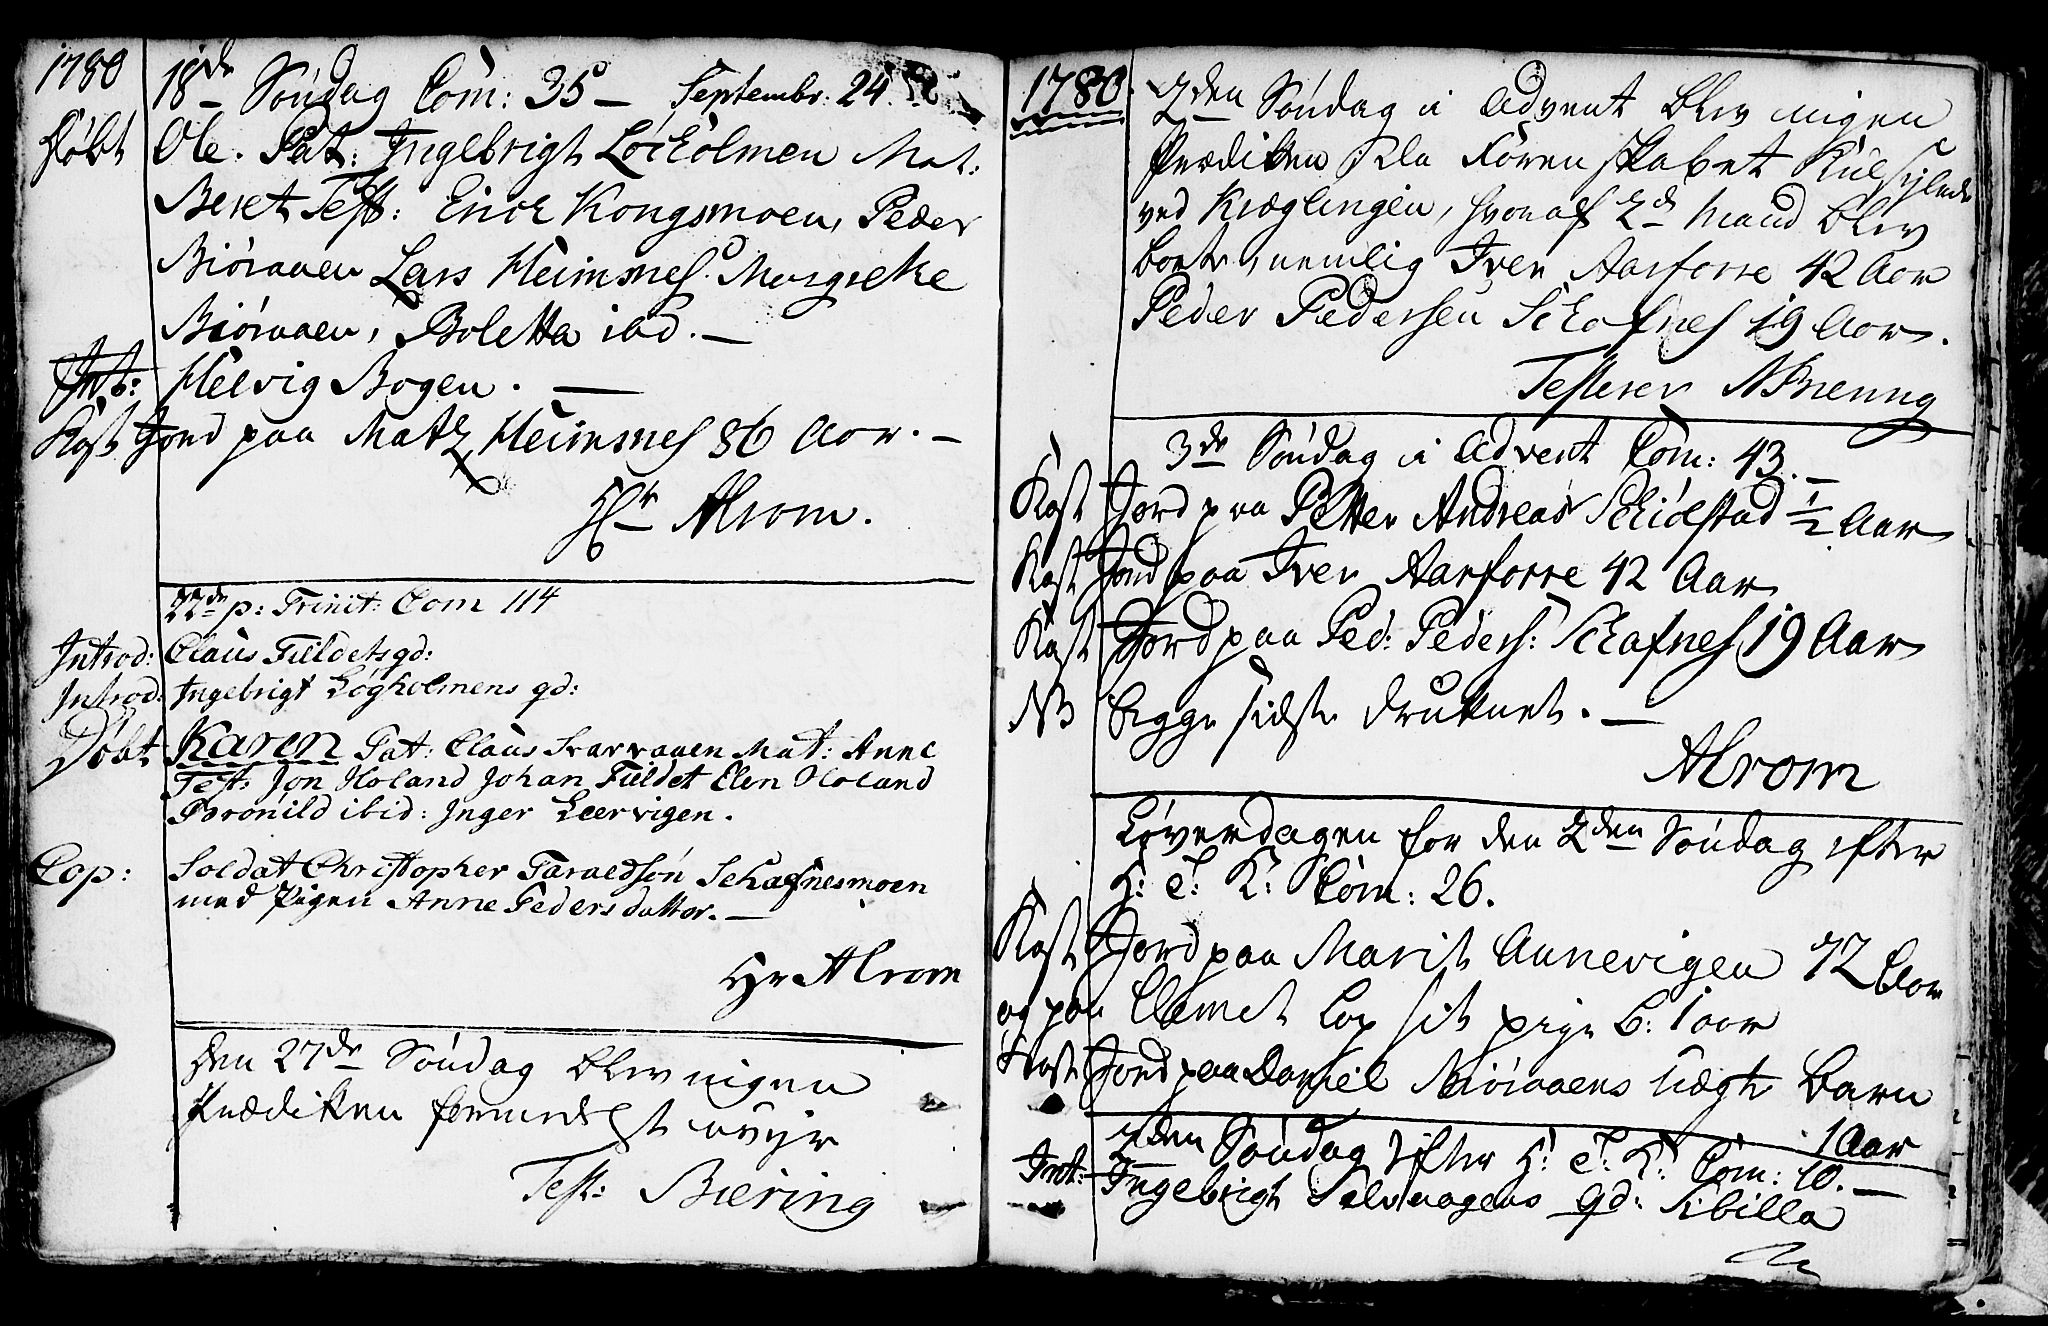 1780
18de Søndag Com: 35 — Septembr: 24.
Døbt Ole. Pat: Ingebrigt Løckolmen Mat:
Beret Test: Enok Kongsmoen, Peder
Biøraaen Lars Heimsnes. Margrethe
Biøraaen, Boletta ibd. —
Int: Helvig Bogen. —
Kast Jord paa Matz Heimsnes 86 Aar. —
Hr Alrom.
22de p: Trinit: Com 114
Introd: Claus Fieldets qd:
Introd: Ingebrigt Løgholmens qd:
Døbt Karen Pat: Claus Svarvaaen Mat: Anne
Test: Jon Høland Johan Fieldet Elen Høland
ibid: Inger Leervigen.
Cop: Soldat Christopher Taraldsøn Schafnesmoen
med Pigen Anne Pedersdatter. —
Hr Alrom
Den 27de Søndag blev ingen
Prædiken formedelst uvejr
Test: Biering
1780.
2den Søndag i Advent blev ingen
Prædiken da
ved Kræglingen, hvoraf 2de Mand blev
borte, nemlig Iver Aarforre 42 Aar
Peder Pedersen Schafnes 19 Aar.
Testerer NBierring
3de Søndag i Advent Com: 43. —
Kast Jord paa Petter Andreas Schiølstad ½ Aar
Kast Jord paa Iver Aarforre 42 Aar
Kast Jord paa Ped: Peders: Schafnes 19 Aar
NB Begge sidste druknet. —
Alrom
Løverdagen for den 2den Søndag efter
H: T: K: Com: 26.
Kast Jord paa Marit Aunevigen 72 Aar
og paa Clemet Lap sit pige b: 1 aar
Kast Jord paa Daniel Biøraaens Uægte Barn
1 Aar
2den Søndag efter H: T: K: Com: 10. —
Int: Ingebrigt Selvaagens qd: Sibilla